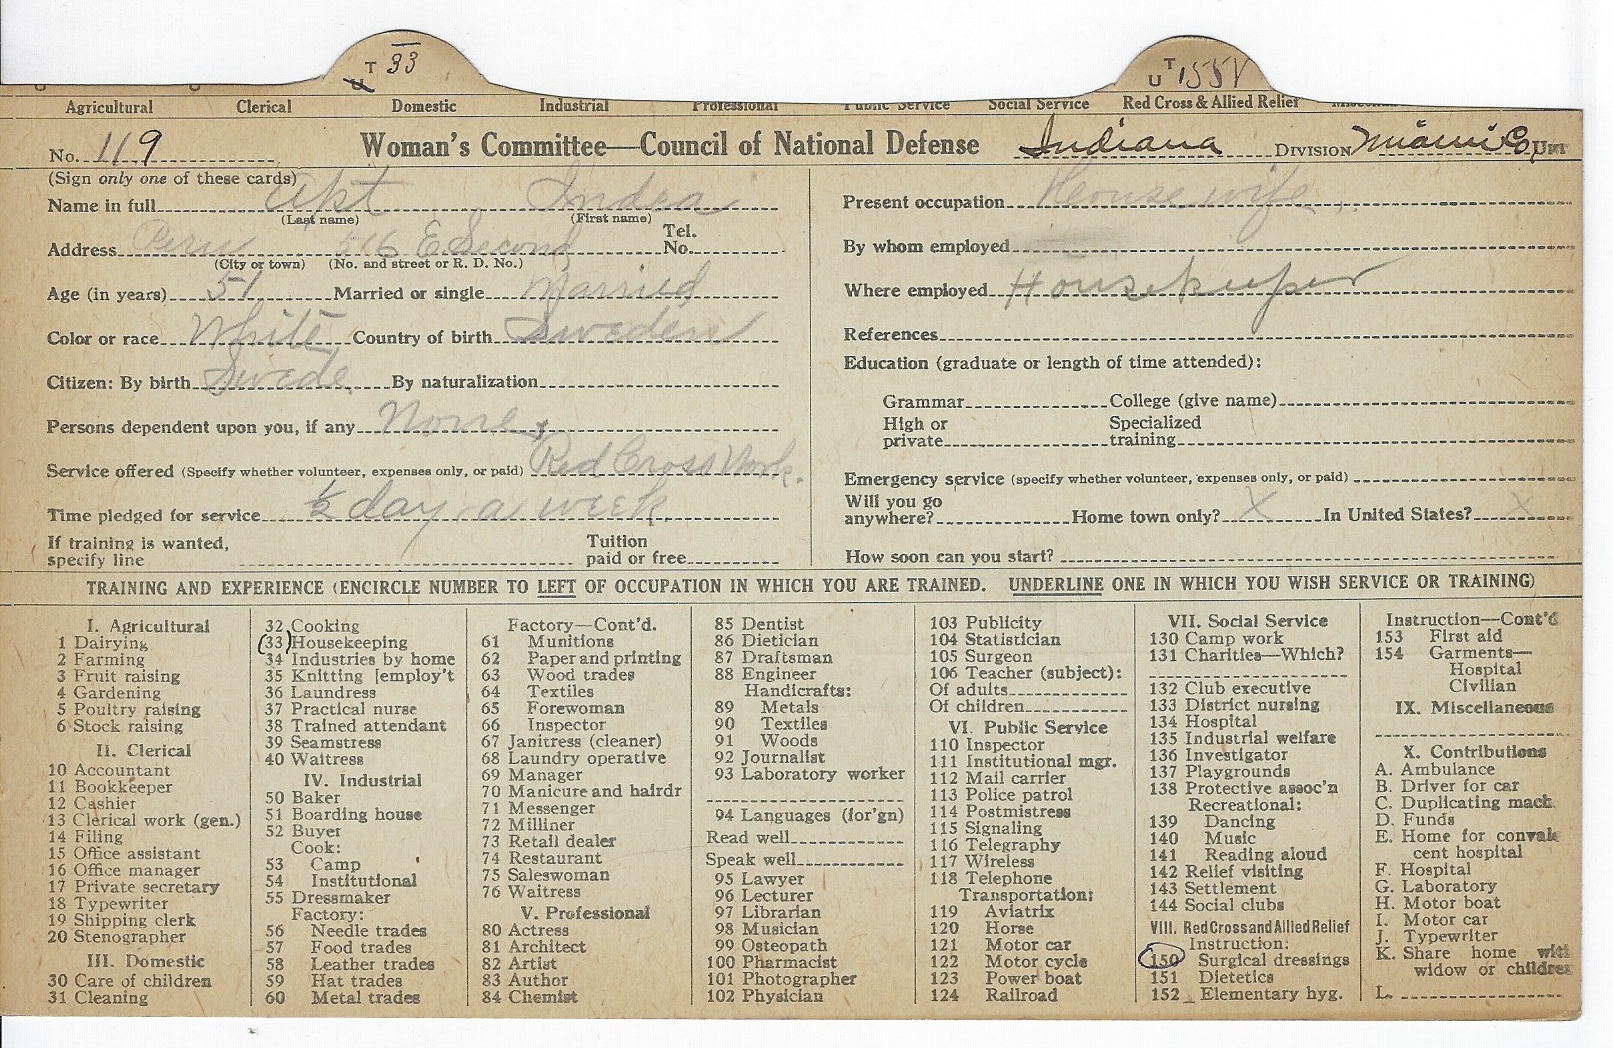 T 33
U
U T 155V
Agricultural Clerical Domestic Industrial Professional Public Service Social Service Red Cross & Allied Relief
No. 119 Woman's Committee—Council of National Defense Indiana DIVISION Miami Co. UNIT
(Sign only one of these cards)
Name in full Apt Indea
(Last name) (First name)
Address Peru 516 E. Second Tel. No.
(City or town) (No. and street or R. D. No.)
Age (in years) 51 Married or single Married
Color or race White Country of birth Sweden
Citizen: By birth Swede By naturalization
Persons dependent upon you, if any None
Service offered (Specify whether volunteer, expenses only, or paid) Red Cross Work.
Time pledged for service ½ day a week
If training is wanted, specify line Tuition paid or free
Present occupation Housewife
By whom employed
Where employed Housekeeper
References
Education (graduate or length of time attended):
Grammar College (give name)
High or private Specialized training
Emergency service (specify whether volunteer, expenses only, or paid)
Will you go anywhere? Home town only? X In United States? X
How soon can you start?
TRAINING AND EXPERIENCE (ENCIRCLE NUMBER TO LEFT OF OCCUPATION IN WHICH YOU ARE TRAINED. UNDERLINE ONE IN WHICH YOU WISH SERVICE OR TRAINING)
I. Agricultural
1 Dairying
2 Farming
3 Fruit raising
4 Gardening
5 Poultry raising
6 Stock raising
II. Clerical
10 Accountant
11 Bookkeeper
12 Cashier
13 Clerical work (gen.)
14 Filing
15 Office assistant
16 Office manager
17 Private secretary
18 Typewriter
19 Shipping clerk
20 Stenographer
III. Domestic
30 Care of children
31 Cleaning
32 Cooking
(33) Housekeeping
34 Industries by home
35 Knitting [employ't
36 Laundress
37 Practical nurse
38 Trained attendant
39 Seamstress
40 Waitress
IV. Industrial
50 Baker
51 Boarding house
52 Buyer
Cook:
53 Camp
54 Institutional
55 Dressmaker
Factory:
56 Needle trades
57 Food trades
58 Leather trades
59 Hat trades
60 Metal trades
Factory—Cont'd.
61 Munitions
62 Paper and printing
63 Wood trades
64 Textiles
65 Forewoman
66 Inspector
67 Janitress (cleaner)
68 Laundry operative
69 Manager
70 Manicure and hairdr
71 Messenger
72 Milliner
73 Retail dealer
74 Restaurant
75 Saleswoman
76 Waitress
V. Professional
80 Actress
81 Architect
82 Artist
83 Author
84 Chemist
85 Dentist
86 Dietician
87 Draftsman
88 Engineer
Handicrafts:
89 Metals
90 Textiles
91 Woods
92 Journalist
93 Laboratory worker
94 Languages (for'gn)
Read well
Speak well
95 Lawyer
96 Lecturer
97 Librarian
98 Musician
99 Osteopath
100 Pharmacist
101 Photographer
102 Physician
103 Publicity
104 Statistician
105 Surgeon
106 Teacher (subject):
Of adults
Of children
VI. Public Service
110 Inspector
111 Institutional mgr.
112 Mail carrier
113 Police patrol
114 Postmistress
115 Signaling
116 Telegraphy
117 Wireless
118 Telephone
Transportation:
119 Aviatrix
120 Horse
121 Motor car
122 Motor cycle
123 Power boat
124 Railroad
VII. Social Service
130 Camp work
131 Charities—Which?
132 Club executive
133 District nursing
134 Hospital
135 Industrial welfare
136 Investigator
137 Playgrounds
138 Protective assoc'n
Recreational:
139 Dancing
140 Music
141 Reading aloud
142 Relief visiting
143 Settlement
144 Social clubs
VIII. Red Cross and Allied Relief
Instruction:
150 Surgical dressings
151 Dietetics
152 Elementary hyg.
Instruction—Cont'd
153 First aid
154 Garments—
Hospital
Civilian
IX. Miscellaneous
X. Contributions
A. Ambulance
B. Driver for car
C. Duplicating mach.
D. Funds
E. Home for convales
cent hospital
F. Hospital
G. Laboratory
H. Motor boat
I. Motor car
J. Typewriter
K. Share home with
widow or children
L.